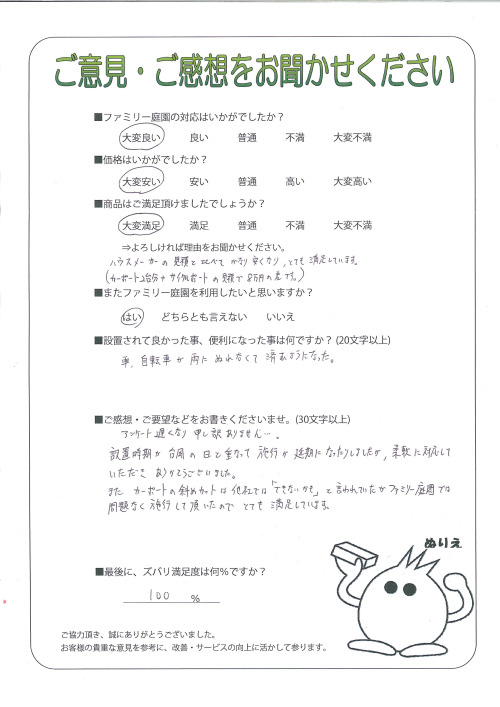 ご意見・ご感想をお聞かせください
■ファミリー庭園の対応はいかがでしたか？
大変良い 良い 普通 不満 大変不満
■価格はいかがでしたか？
大変安い 安い 普通 高い 大変高い
■商品はご満足頂けましたでしょうか？
大変満足 満足 普通 不満 大変不満
⇒よろしければ理由をお聞かせください。
ハウスメーカーの見積と比べて かなり安くなり、とても満足しています。
(カーポート2台分+サイクルポートの見積で8万円の差です。)
■またファミリー庭園を利用したいと思いますか？
はい どちらとも言えない いいえ
■設置されて良かった事、便利になった事は何ですか？(20文字以上)
車、自転車が雨にぬれなくて済むようになった。
■ご感想・ご要望などをお書きくださいませ。(30文字以上)
アンケート遅くなり申し訳ありません…。
設置時期が台風の日と重なって施行が延期になったりしましたが、柔軟に対応して
いただき ありがとうございました。
また カーポートの斜めカットは他社では「できないかも」と言われていたがファミリー庭園では
問題なく施行して頂いたので とても満足しています。
ぬりえ
■最後に、ズバリ満足度は何%ですか？
100 %
ご協力頂き、誠にありがとうございました。
お客様の貴重な意見を参考に、改善・サービスの向上に活かして参ります。